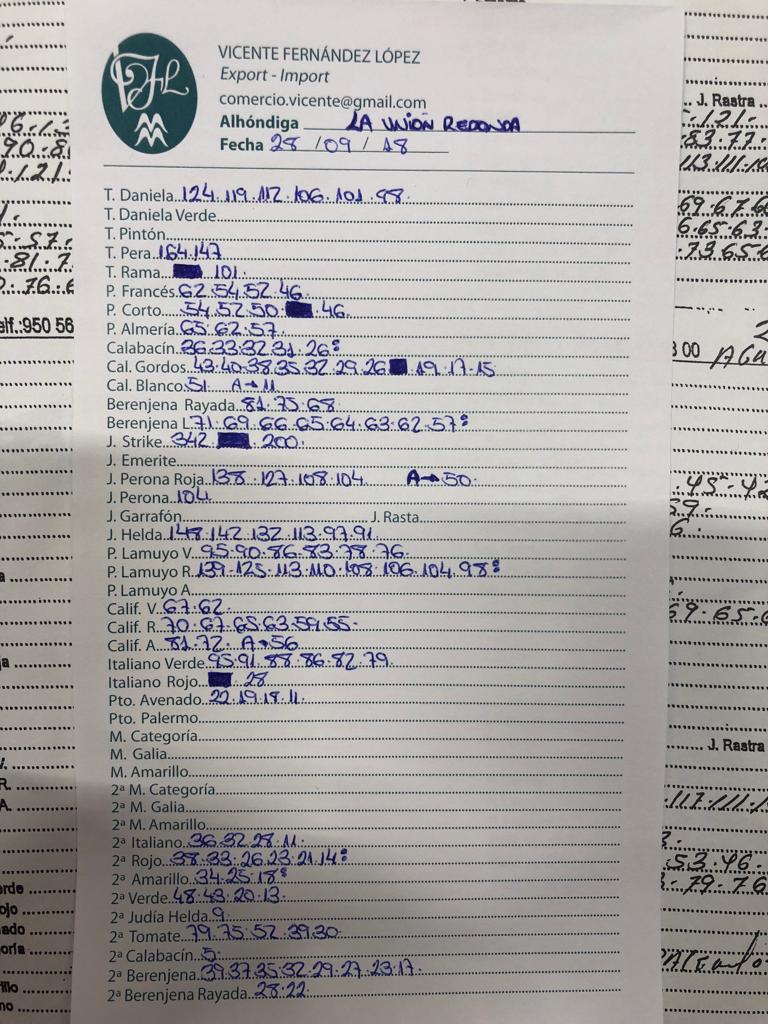 VICENTE FERNÁNDEZ LÓPEZ
Export - Import
comercio.vicente@gmail.com
Alhóndiga LA UNIÓN REDONDA
Fecha 28/09/18
T. Daniela 124.119.112.106.101.98.
T. Daniela Verde
T. Pintón
T. Pera 164.147
T. Rama 101.
P. Francés 62.54.52.46.
P. Corto 54.52.50. .46.
P. Almería 65.62.57.
Calabacín 36.33.32.31.26:
Cal. Gordos 43.40.38.35.32.29.26 .19.17.15
Cal. Blanco 51 A→11
Berenjena Rayada 81.75.68
Berenjena L 71.69.66.65.64.63.62.57:
J. Strike 342. .200.
J. Emerite
J. Perona Roja 138.127.108.104 A→50.
J. Perona 104
J. Garrafón J. Rasta
J. Helda 148.142.132.113.97.91.
P. Lamuyo V. 95.90.86.83.78.76.
P. Lamuyo R. 139.125.113.110.108.106.104.98:
P. Lamuyo A
Calif. V. 67.62.
Calif. R. 70.67.65.63.59.55.
Calif. A. 81.72. A→56
Italiano Verde 95.91.88.86.82.79.
Italiano Rojo 28
Pto. Avenado 22.19.18.11.
Pto. Palermo
M. Categoría
M. Galia
M. Amarillo
2ª M. Categoría
2ª M. Galia
2ª M. Amarillo
2ª Italiano 36.32.28.11.
2ª Rojo 38.33.26.23.21.14:
2ª Amarillo 34.25.18:
2ª Verde 48.43.20.13.
2ª Judía Helda 9
2ª Tomate 79.75.52.39.30
2ª Calabacín 5
2ª Berenjena 39.37.35.32.29.27.23.17.
2ª Berenjena Rayada 28.22.
J. Rastra
J. Rastra